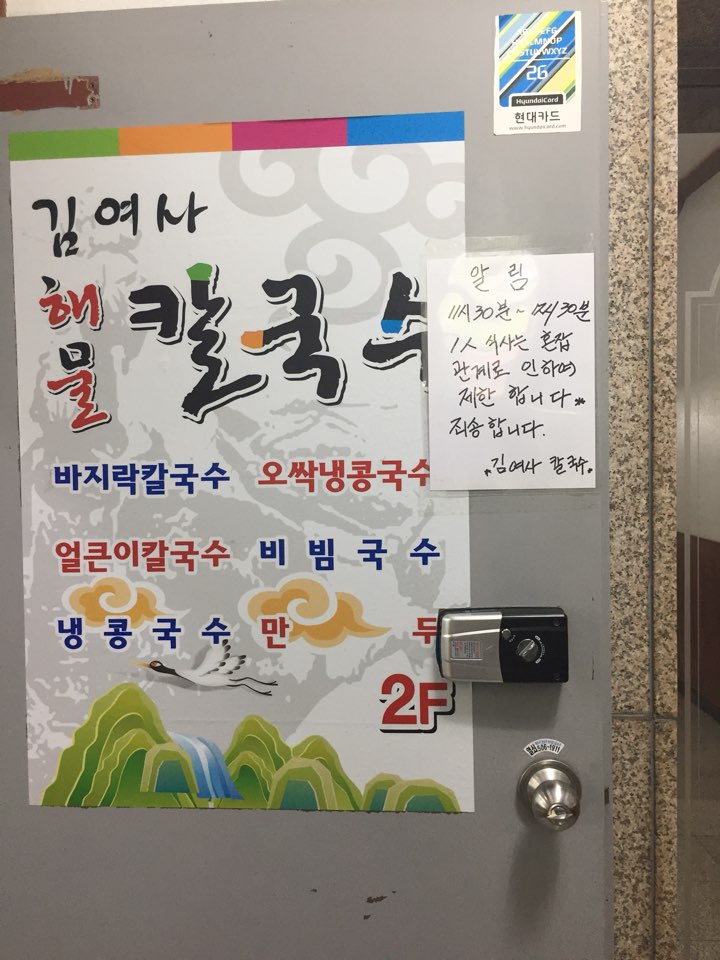 EFG
LMNOP
STUVWXYZ
26
HyundaiCard
현대카드
www.hyundaicard.com
김여사
해물
칼국수
알림
11시30분~12시30분
1人 식사는 혼잡
관계로 인하여
제한 합니다
죄송합니다.
김여사 칼국수
바지락칼국수 오싹냉콩국수
얼큰이칼국수 비빔국수
냉콩국수 만두
2F